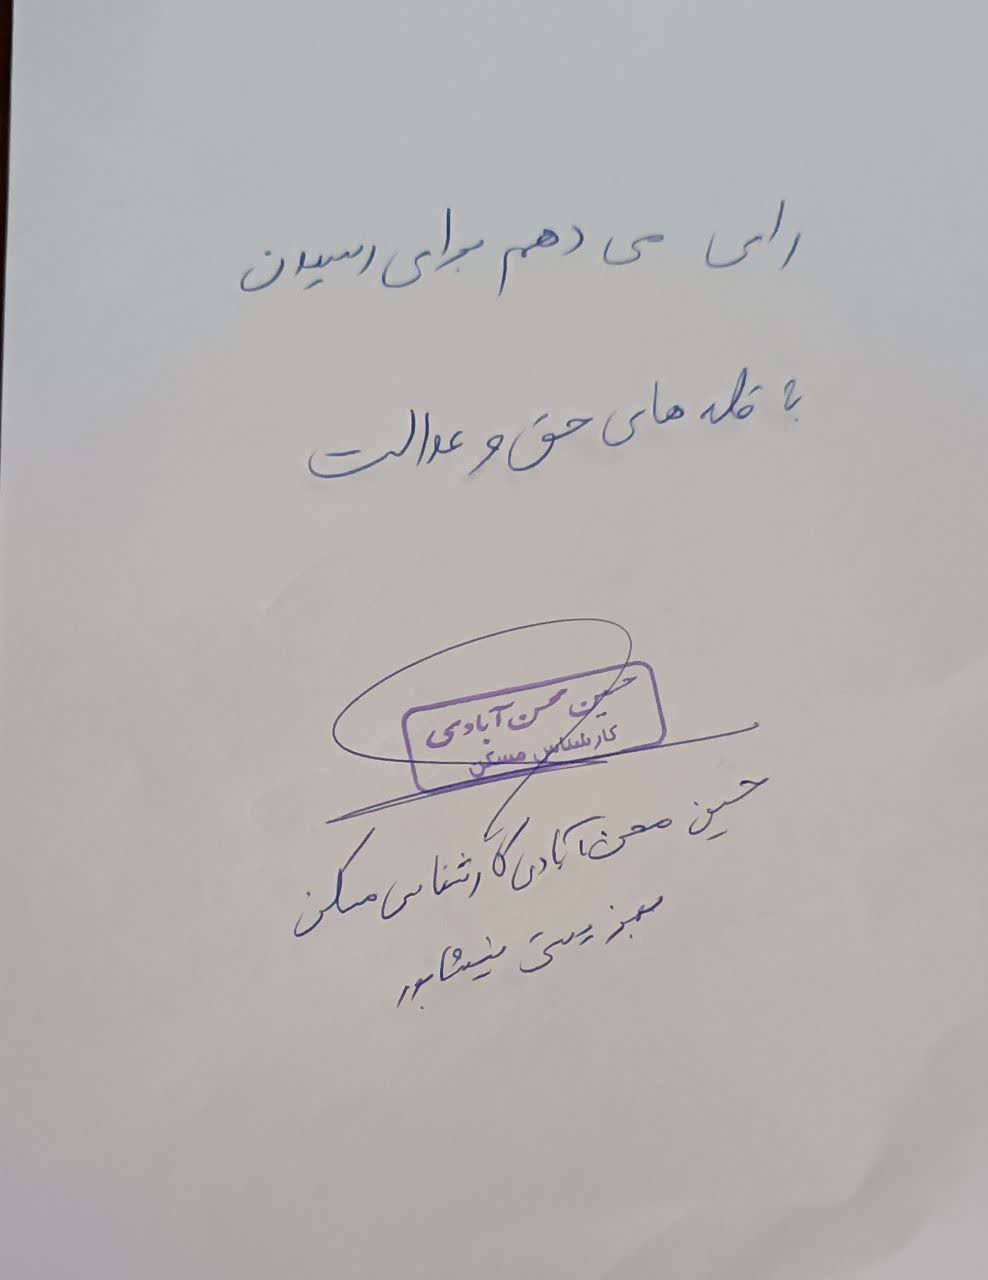 رای می دهم برای رسیدن
به قله های حق و عدالت
حسین محسن آبادی
کارشناس مسکن
حسین محسن آبادی کارشناس مسکن
بهزیستی نیشابور